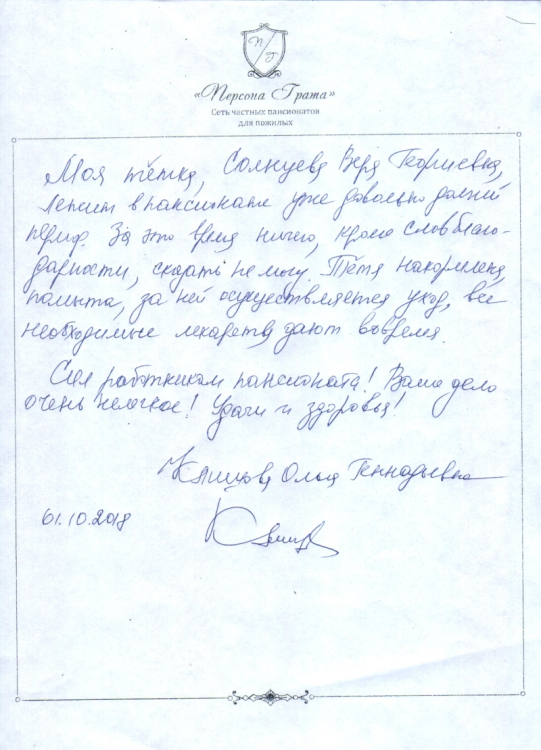 П Г
«Персона Грата»
Сеть частных пансионатов
для пожилых
Моя тётка, Солнцева Вера Георгиевна,
лежит в пансионате уже довольно долгий
период. За это время ничего, кроме слов благо-
дарности, сказать не могу. Тётя накормлена,
помыта, за ней осуществляется уход, все
необходимые лекарства дают вовремя.
Сил работникам пансионата! Ваше дело
очень нелегкое! Удачи и здоровья!
Ольга Геннадьевна
01.10.2018